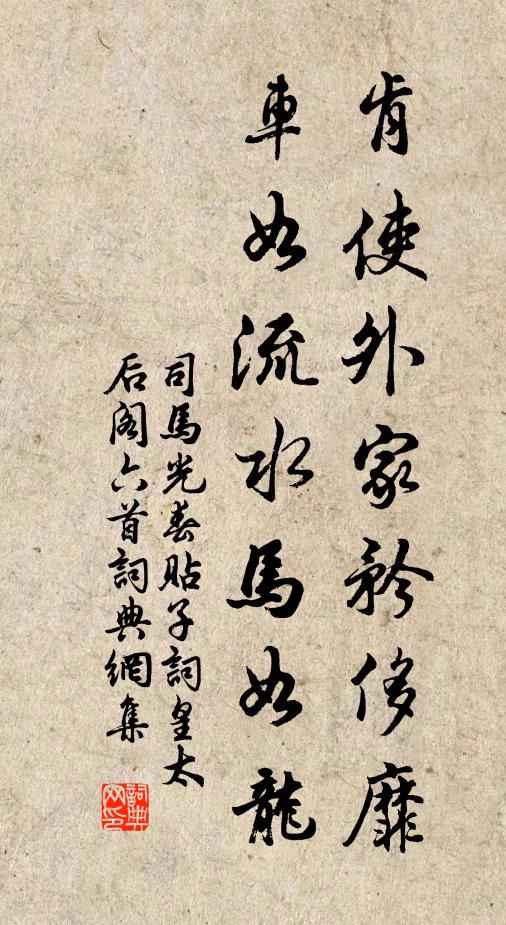 肯使外家矜侈靡
車如流水馬如龍
司馬光春貼子詞皇太
后閣六首詞典網集
詞典网印